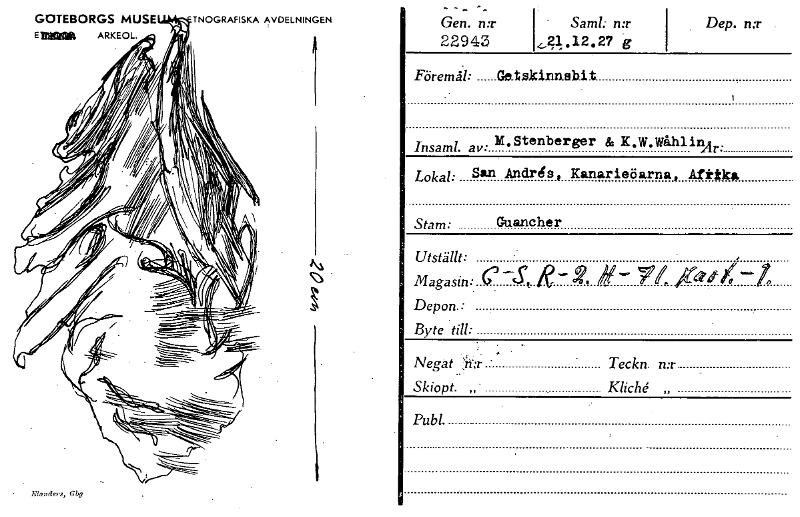 GÖTEBORGS MUSEUM, ETNOGRAFISKA AVDELNINGEN
ARKEOL.
20 cm
Elanders, Gbg
Gen. n:r
22943
Saml. n:r
21.12.27 g
Dep. n:r
Föremål: Getskinnsbit
Insaml. av: M.Stenberger & K.W.Wåhlin År:
Lokal: San Andrés, Kanarieöarna, Afrika
Stam: Guancher
Utställt:
Magasin: C-S. R-2. H-71. Kast.-1.
Depon.:
Byte till:
Negat n:r Teckn n:r
Skiopt. „ Kliché „
Publ.